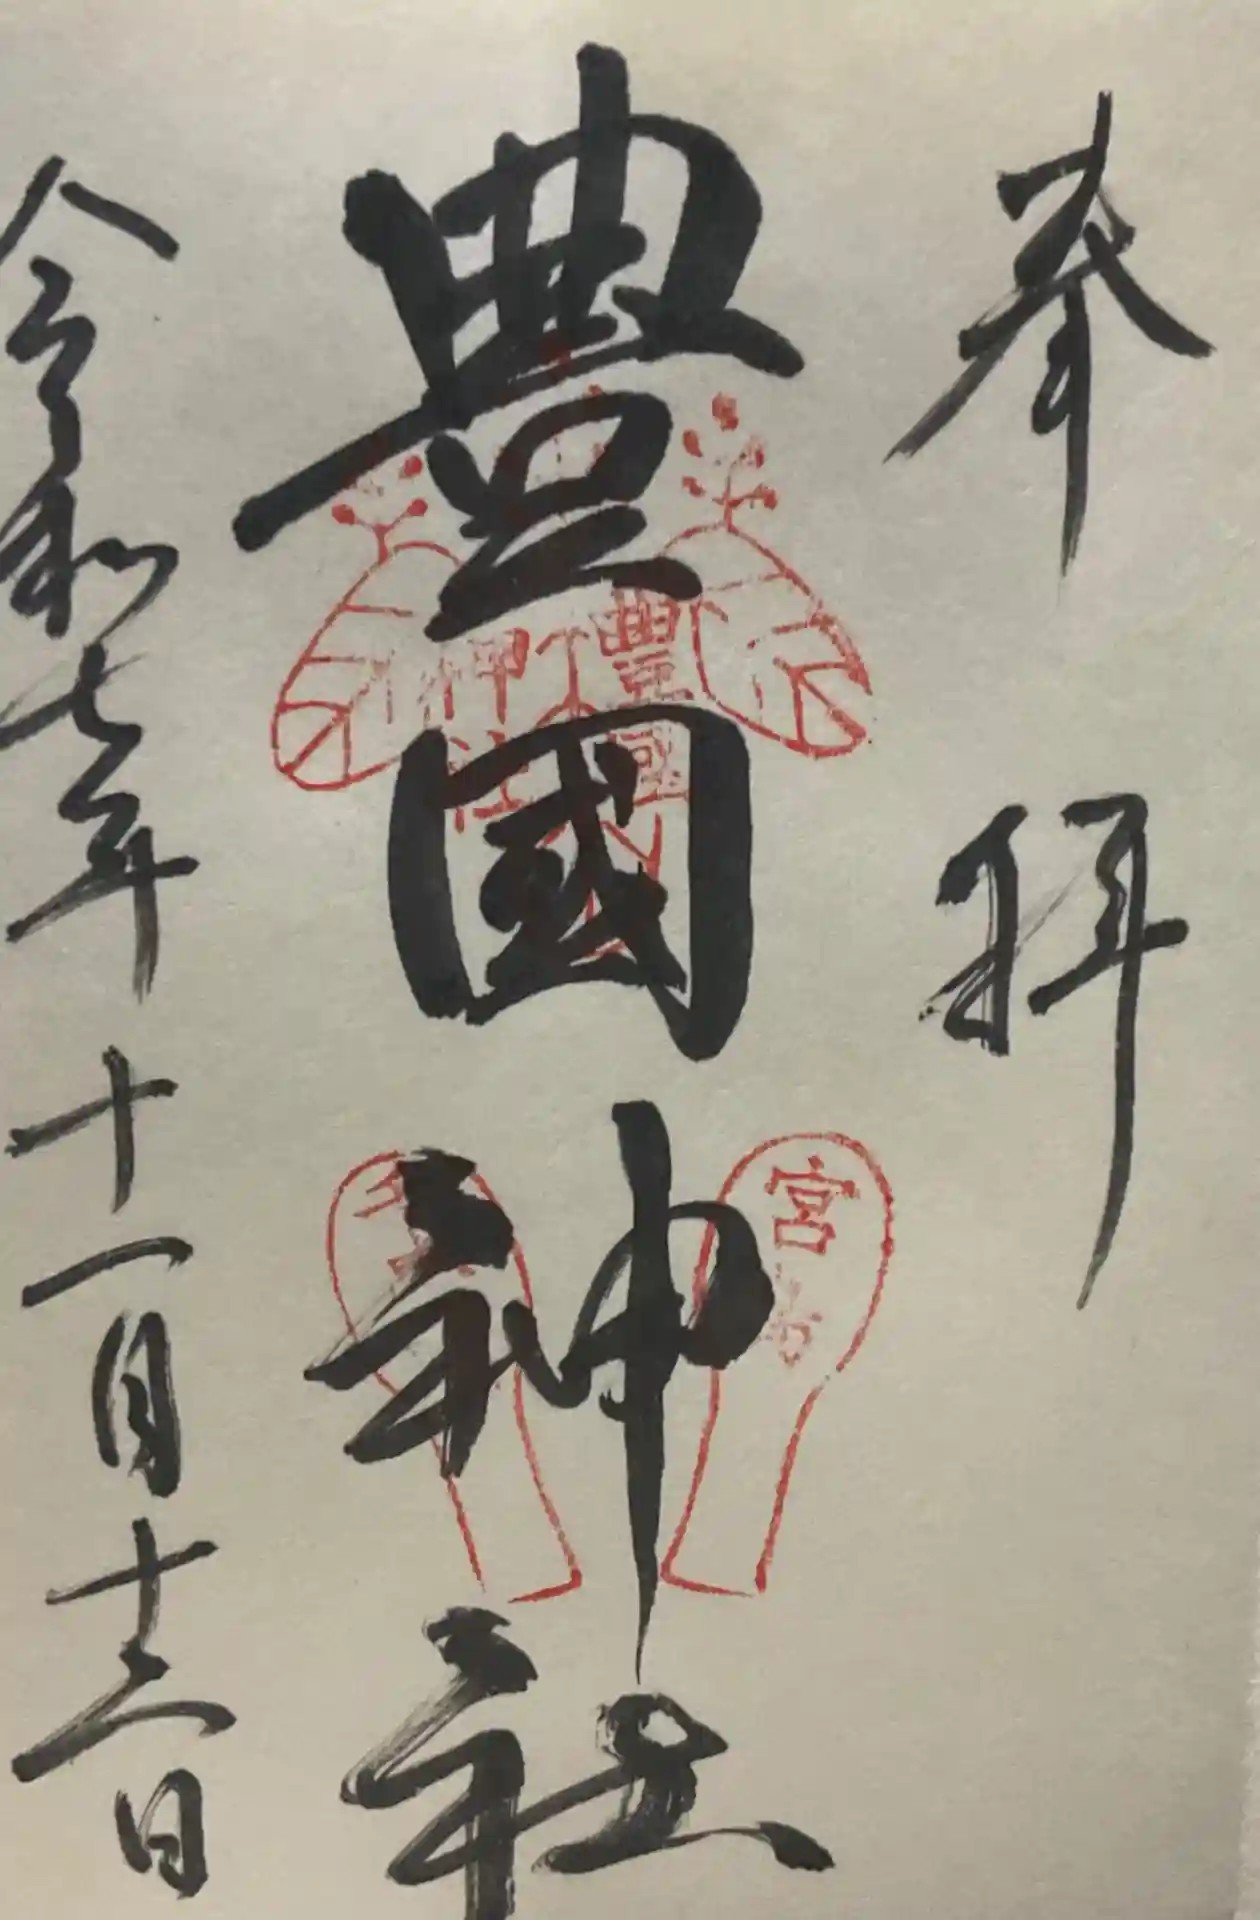 奉拝
豊國神社
令和七年十一月十六日
豐國
神社
宮